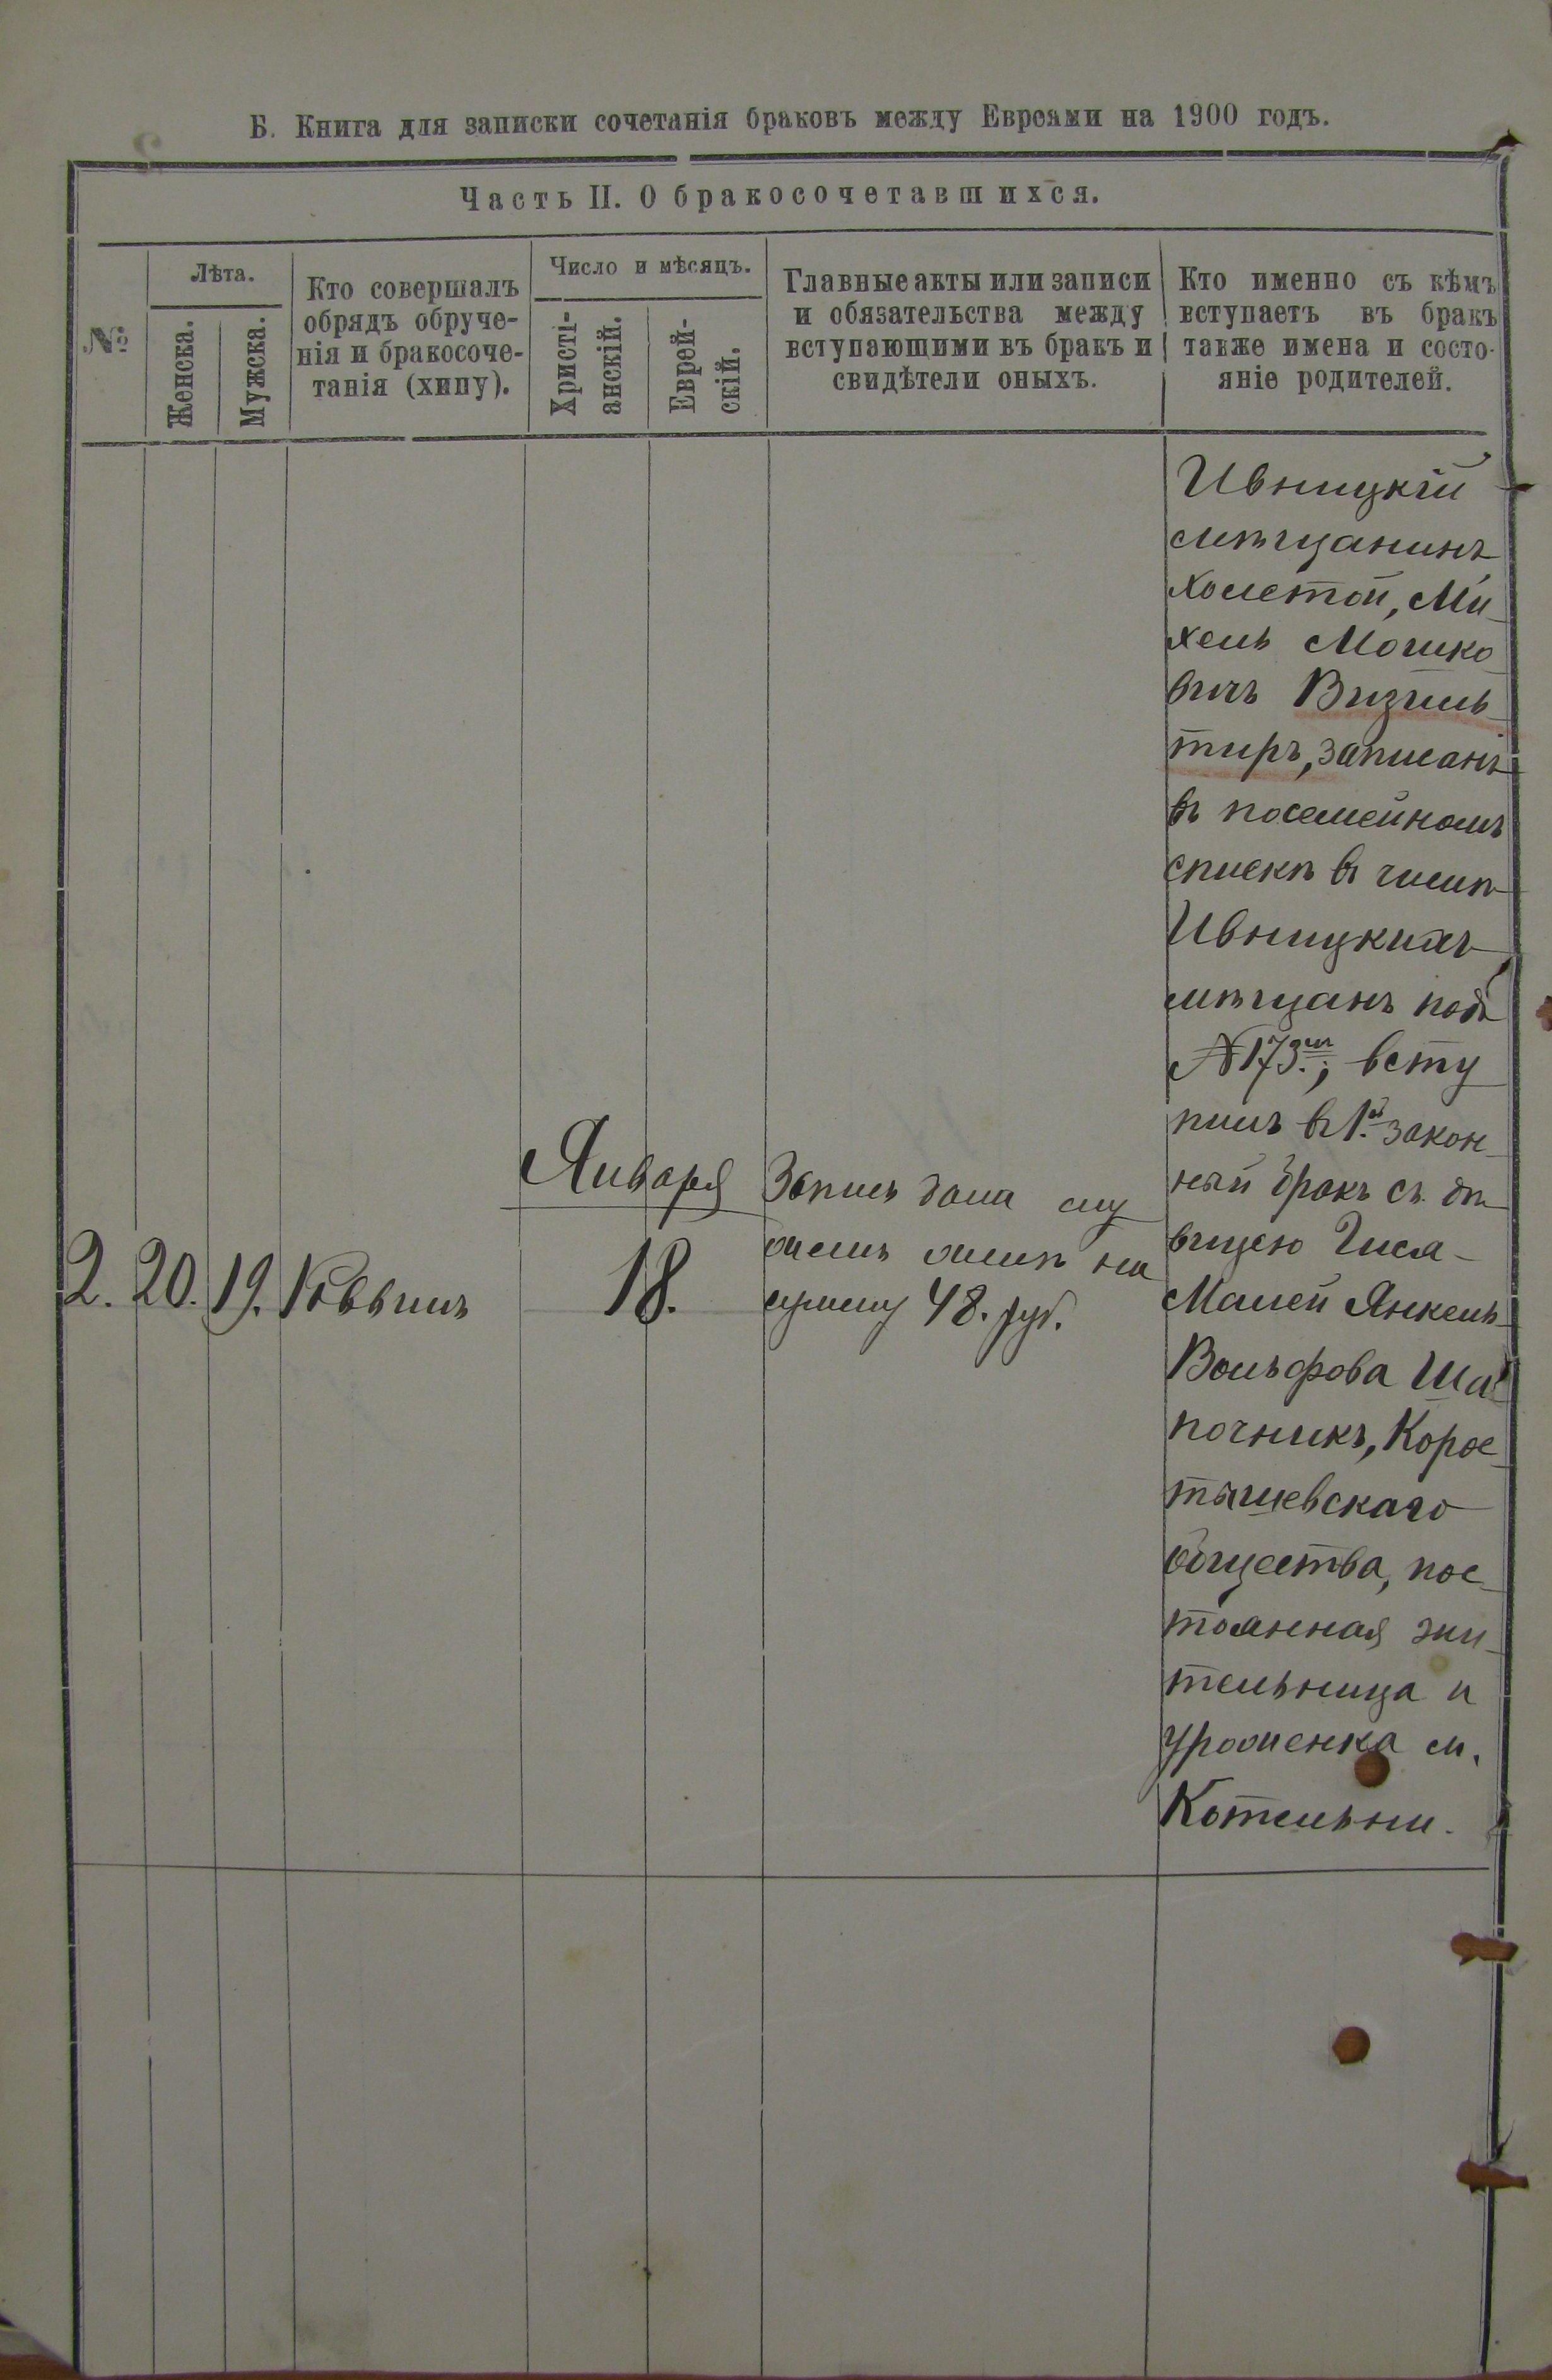 Б. Книга для записки сочетанія браковъ между Евреями на 1900 годъ.
Часть II. О бракосочетавшихся.
№
Лѣта.
Женска.
Мужска.
Кто совершалъ
обрядъ обруче-
нія и бракосоче-
танія (хипу).
Число и мѣсяцъ.
Христі-
анскій.
Еврей-
скій.
Главные акты или записи
и обязательства между
вступающими въ бракъ и
свидѣтели оныхъ.
Кто именно съ кѣмъ
вступаетъ въ бракъ
также имена и состо-
яніе родителей.
2.
20.
19.
Раввинъ
Января
18.
Запись дана му
жемъ женѣ на
сумму 48. руб.
Ивницкій
мѣщанинъ
холостой, Ми
хель Мошко
вичъ Визель
тиръ, записанъ
въ посемейномъ
спискѣ въ числѣ
Ивницкихъ
мѣщанъ подъ
№ 173 мъ; всту
пилъ въ 1.й закон
ный бракъ съ дѣ
вицею Гися-
Малей Янкель
Вольфова Ша
почникъ, Корос
тышевскаго
общества, пос
тоянная жи
тельница и
уроженка м.
Котельни.